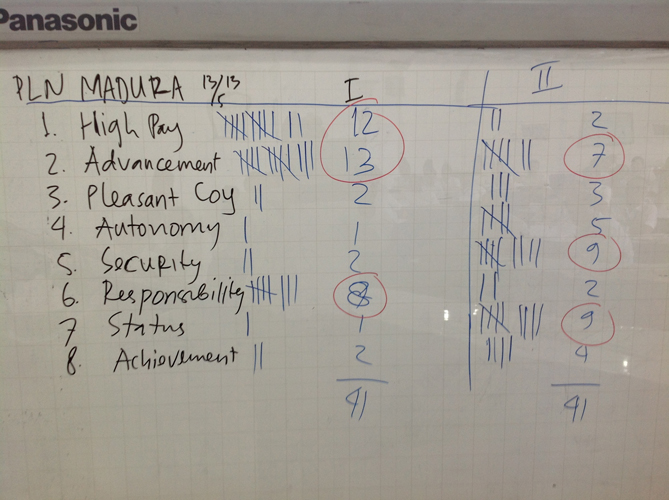 Panasonic
PLN MADURA 13/5/13 I II
1. High Pay 12 2
2. Advancement 13 7
3. Pleasant Coy 2 3
4. Autonomy 1 5
5. Security 2 9
6. Responsibility 8 2
7 Status 1 9
8. Achievement 2 4
41 41